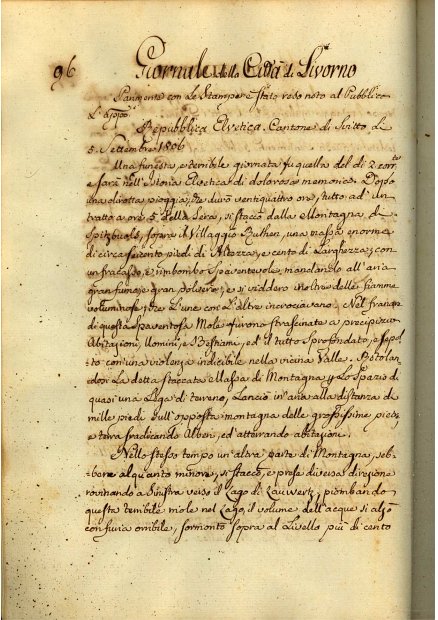 96 Giornale della Città di Livorno
Parimente con le Stampe è stato reso noto al Pubblico
Repubblica Elvetica. Cantone di Svitto Li
5. Settembre 1806
Una funesta, e terribile giornata fu quella del dì 2. corr.te
e sarà nell'Istoria Elvetica di dolorosa memoria. Dopo
una dirotta pioggia, che durò ventiquattro ore, tutto ad' un
tratto a ore 5 della Sera, si staccò dalla Montagna, di
Spitzbugls, sopra il Villaggio Ruthen, una massa enorme
di circa seicento piedi di Altezza, e cento di Larghezza; con
un fracasso, e rimbombo Spaventevole, mandando all'aria
gran fumo, e gran polvere; e si viddero inoltre delle fiamme
voluminose, che L'une con L'altre incrociavano. Nel frangere
di questa Spaventosa Mole furono strascinate a precipizio
Abitazioni, Uomini, e Bestiami, ed il tutto Sprofondato, e sepol-
to con una violenza indicibile nella vicina Valle. Rotolan-
dosi La detta staccata Massa di Montagna p Lo Spazio di
quasi una Lega di terreno, Lanciò in aria alla distanza di
mille piedi Sull'opposta montagna delle grossissime pietre
e terra sradicando Alberi, ed atterrando abitazioni.
Nello stesso tempo un'altra parte di Montagna, seb-
bene alquanto minore, si staccò, e prese diversa direzione
rovinando a Sinistra verso il Lago di Lauwertz; piombando
questa terribile mole nel Lago, il volume dell'acque si alzò
con furia orribile, sormontò sopra al Livello più di cento